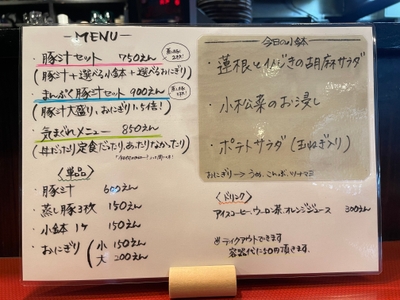 ーMENUー
豚汁セット 750えん
(豚汁+選べる小鉢+選べるおにぎり)
まんぷく豚汁セット 900えん
(豚汁大盛り、おにぎり1.5倍!)
気まぐれメニュー 850えん
(丼だったり定食だったり、あったりなかったり)
〈単品〉
・豚汁 600えん
・蒸し豚3枚 150えん
・小鉢1ケ 150えん
・おにぎり(小 150えん
大 200えん
今日の小鉢
・蓮根とひじきの胡麻サラダ
・小松菜のお浸し
・ポテトサラダ(玉ねぎ入り)
おにぎり→うめ、こんぶ、ツナマヨ
〈ドリンク〉
アイスコーヒー、ウーロン茶、オレンジジュース 300えん
※テイクアウトできます
容器代に50円頂きます。